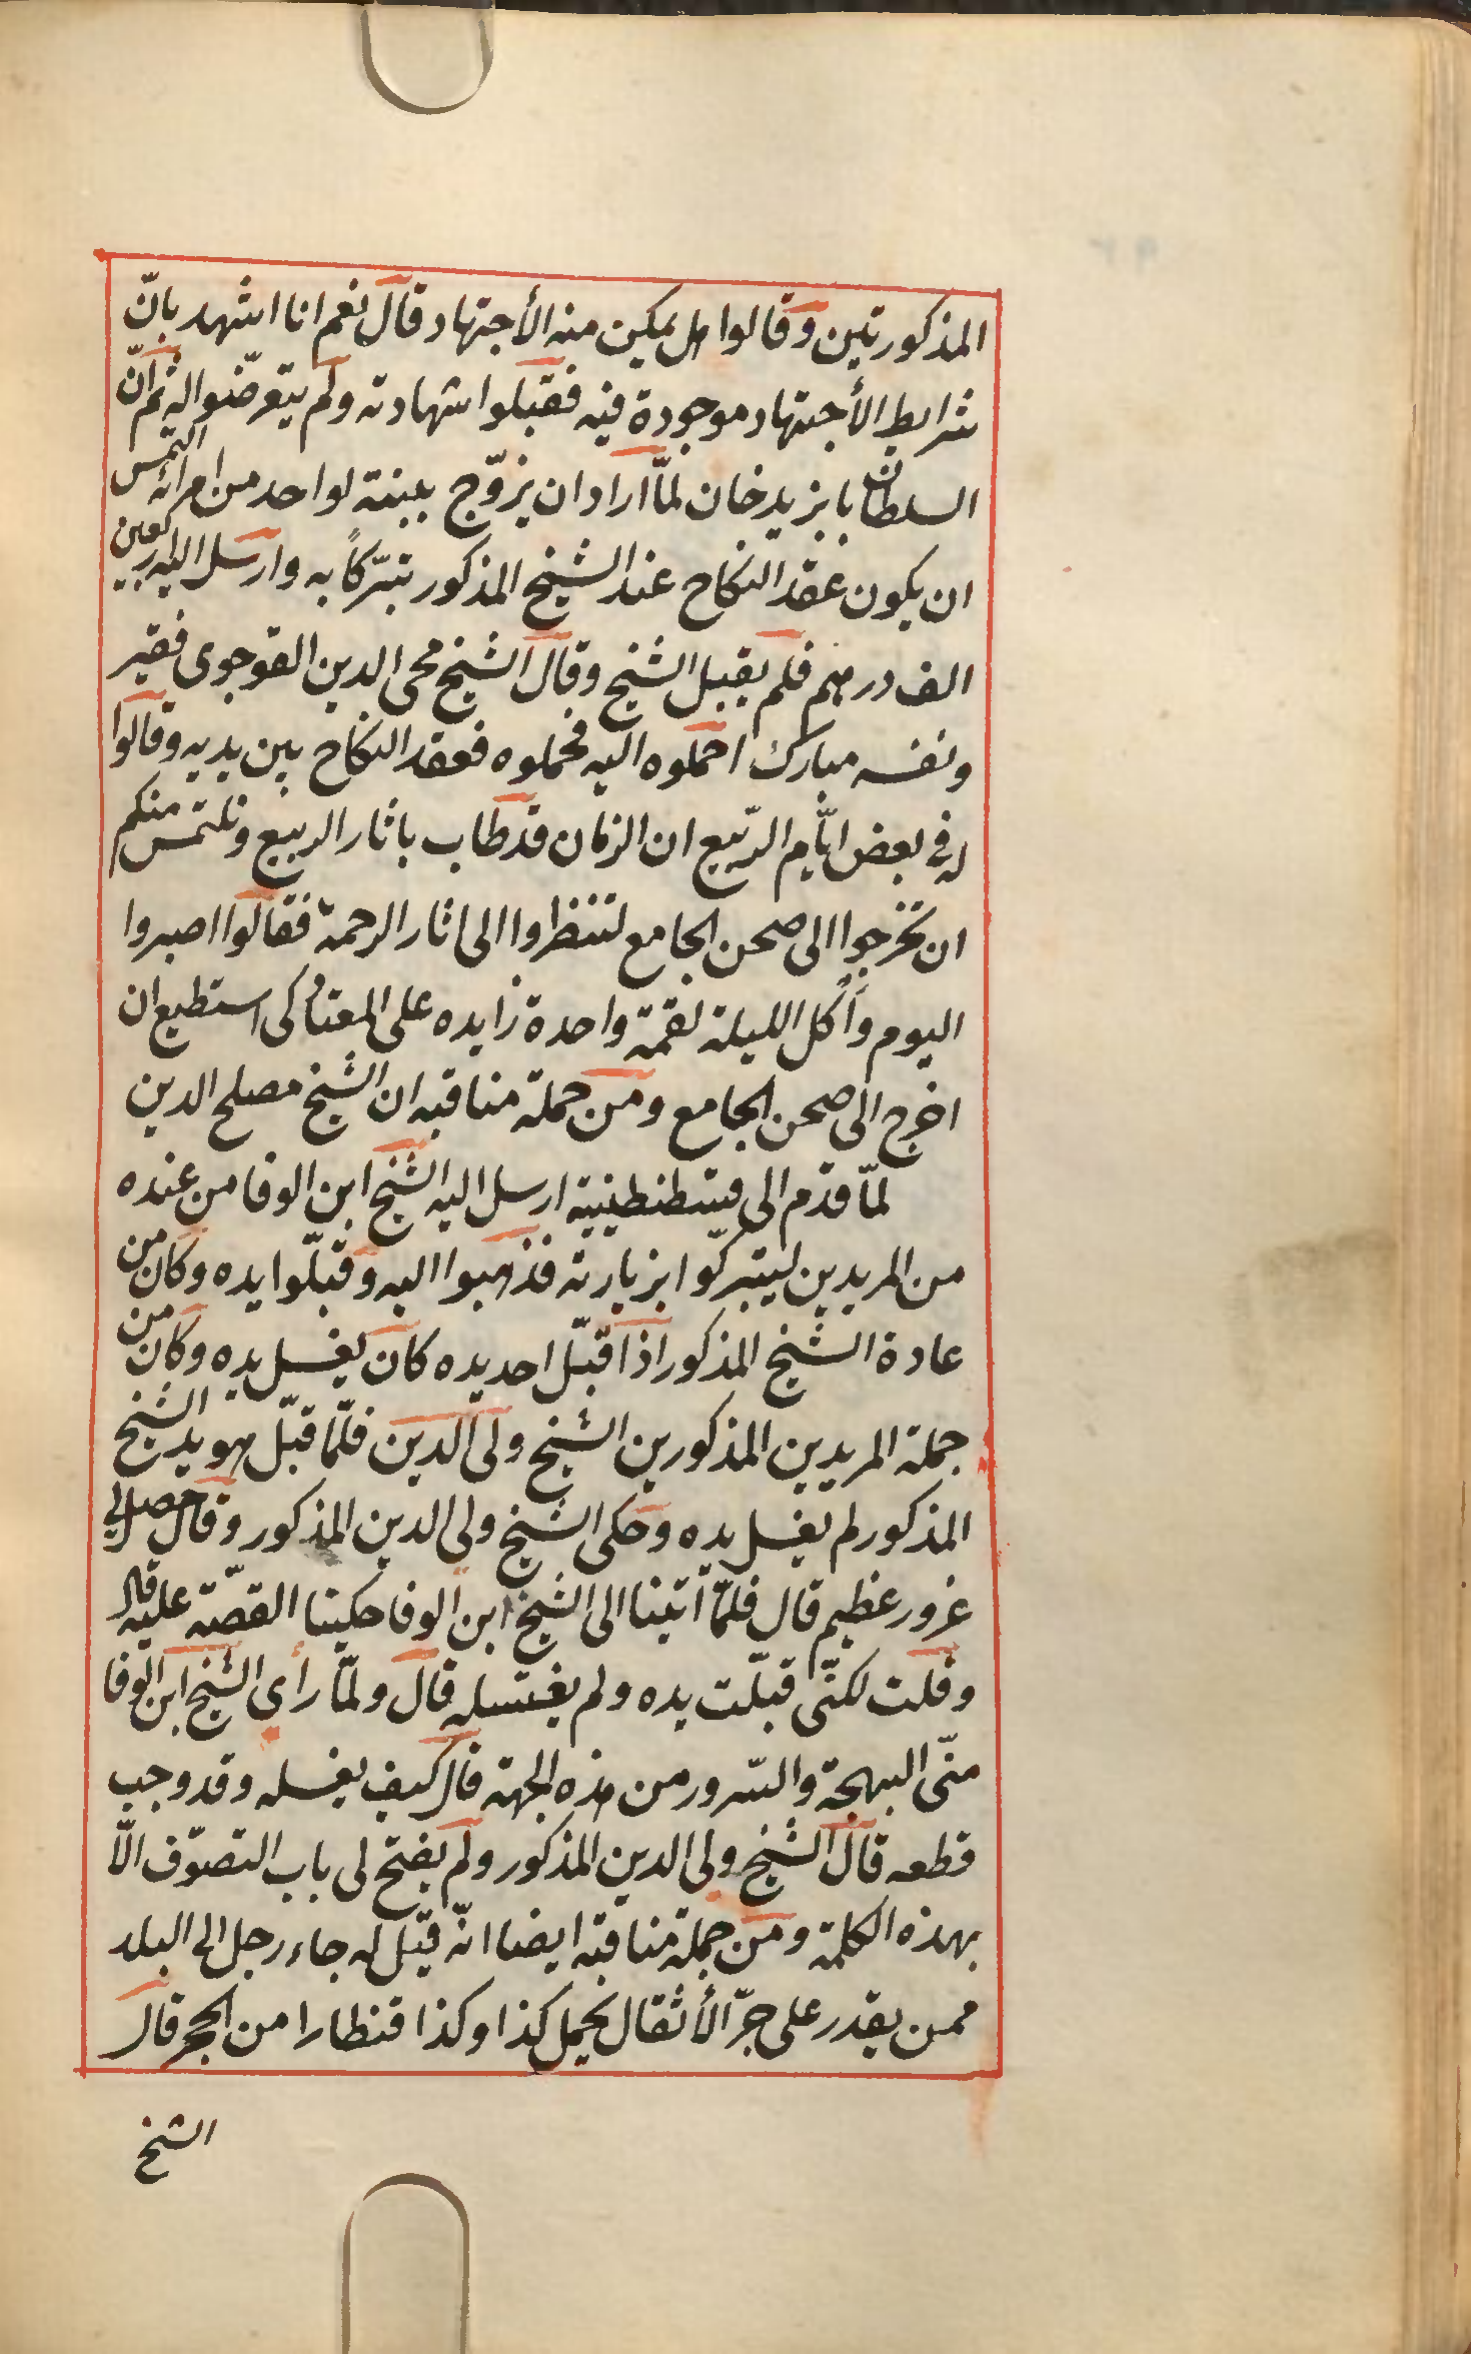 المذكورتين وقالوا هل يمكن منه الأجتهاد قال نعم انا اشهد بانّ
شرايط الأجتهاد موجودة فيه فقبلوا شهادته ولم يتعرضّوا له ثم انّ
السلطان بايزيد خان لمّا اراد ان يزوّج ببنته لواحد من امرائه التمس
ان يكون عقد النكاح عند الشيخ المذكور تبرّكاً به وارسل اليه اربعين
الف درهم فلم يقبل الشيخ وقال الشيخ محى الدين القوجوى فقير
ونفسه مبارك احملوه اليه فحملوه فعقد النكاح بين يديه وقالوا
له في بعض ايّام الرّبيع ان الزمان قد طاب باثار الربيع ونلتمس منكم
ان تخرجوا الى صحن الجامع لتنظروا الى اثار الرحمة فقالوا اصبروا
اليوم وأكل الليلة لقمة واحدة زايده على المعتاد كى استطيع ان
اخرج الى صحن الجامع ومن جملة مناقبه ان الشيخ مصلح الدين
لمّا قدم الى قسطنطينية ارسل اليه الشيخ ابن الوفا من عنده
من المريدين ليتبركّوا بزيارته فذهبوا اليه وقبّلوا يده وكان من
عادة الشيخ المذكور اذا قبّل احد يده كان يغسل يده وكان من
جملة المريدين المذكورين الشيخ ولى الدين فلمّا قبّل هو يد الشيخ
المذكور لم يغسل يده وحكى الشيخ ولى الدين المذكور وقال حصل لي
غرور عظيم قال فلمّا أتينا الى الشيخ ابن الوفا حكينا القصّة عليه قال
وقلت لكنّى قبّلت يده ولم يغتسله قال ولمّا رأى الشيخ ابن الوفا
منّى البهجة والسّرور من هذه الجهة قال كيف يغسله وقد وجب
قطعه قال الشيخ ولى الدين المذكور ولم يفتح لى باب التصوّف الّا
بهذه الكلمة ومن جملة مناقبه ايضا انّه قيّل له جاء رجل الى البلد
ممن يقدر على جرّ الأثقال يحمل كذا وكذا قنطارا من الحجر قال
الشيخ